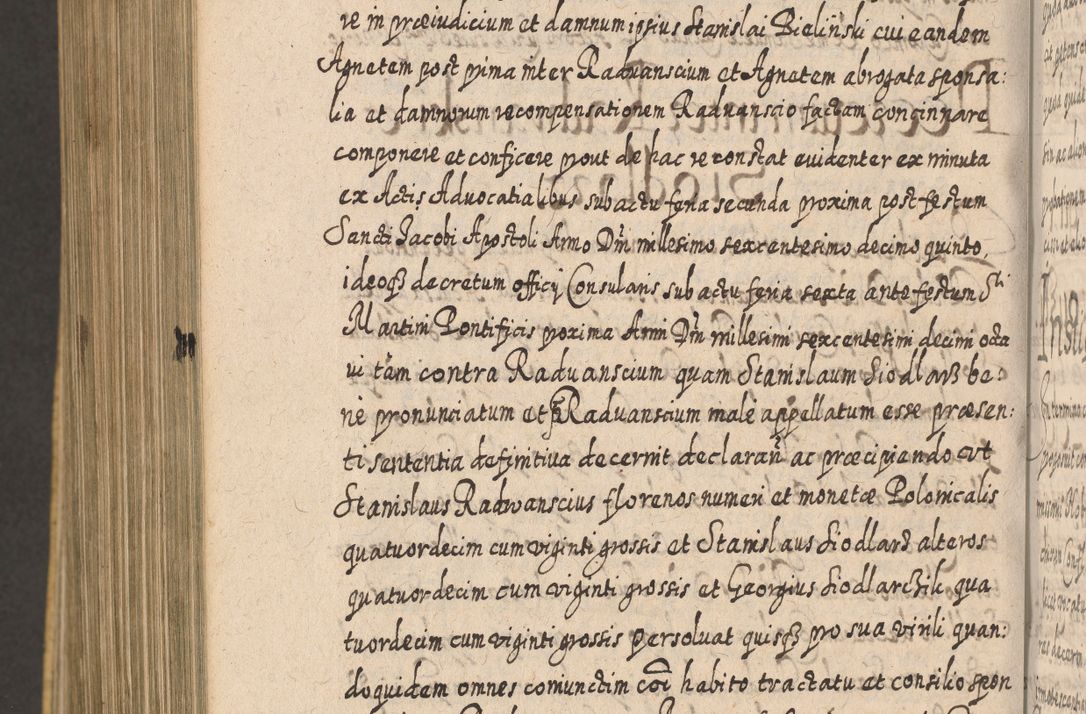 re in præiudicium et damnum ipsius Stanislai Bieliński cui eandem
Agnetem post prima inter Radvanscium et Agnetem abrogata sponsa:
lia et damnorum recompensationem Radvanscio factam concinnare
componere et conficere prout de hac re constat evidenter ex minuta
ex Actis Advocatialibus sub actu feria secunda proxima post festum
Sancti Jacobi Apostoli Anno Dni millesimo sexcentesimo decimo quinto,
ideoqз decretum officij Consularis sub actu feria sexta ante festum Sti
Martini Pontificis proxima Anni Dni millesimi sexcentesimi decimi octa
vi tam contra Radvanscium quam Stanislaum Siodlarz be:
ne pronunciatum et p Radvanscium male appellatum esse præsen:
ti sententia definitiva decernit declarañ ac præcipiendo ut
Stanislaus Radwanscius florenos numeri et monetæ Polonicalis
quatuordecim cum viginti grossis et Stanislaus Siodlarz alteros
quatuordecim cum viginti grossis et Georgius Siodlarczik qua
tuordecim cum viginti grossis persolvat quisqз pro sua virili quan:
doquidem omnes coniunctim coi habito tractatu et consilio spon